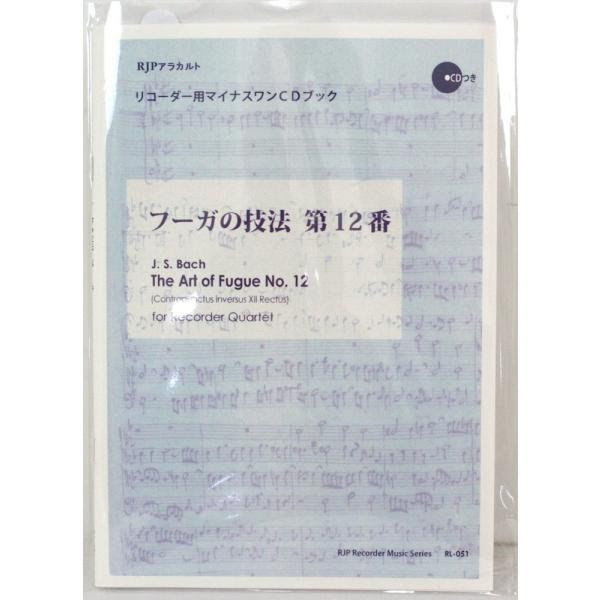 RJPアラカルト
リコーダー用マイナスワンCDブック
●CDつき
フーガの技法 第12番
J. S. Bach
The Art of Fugue No. 12
(Contrapunctus inversus XII Rectus)
for Recorder Quartet
RJP Recorder Music Series RL-051